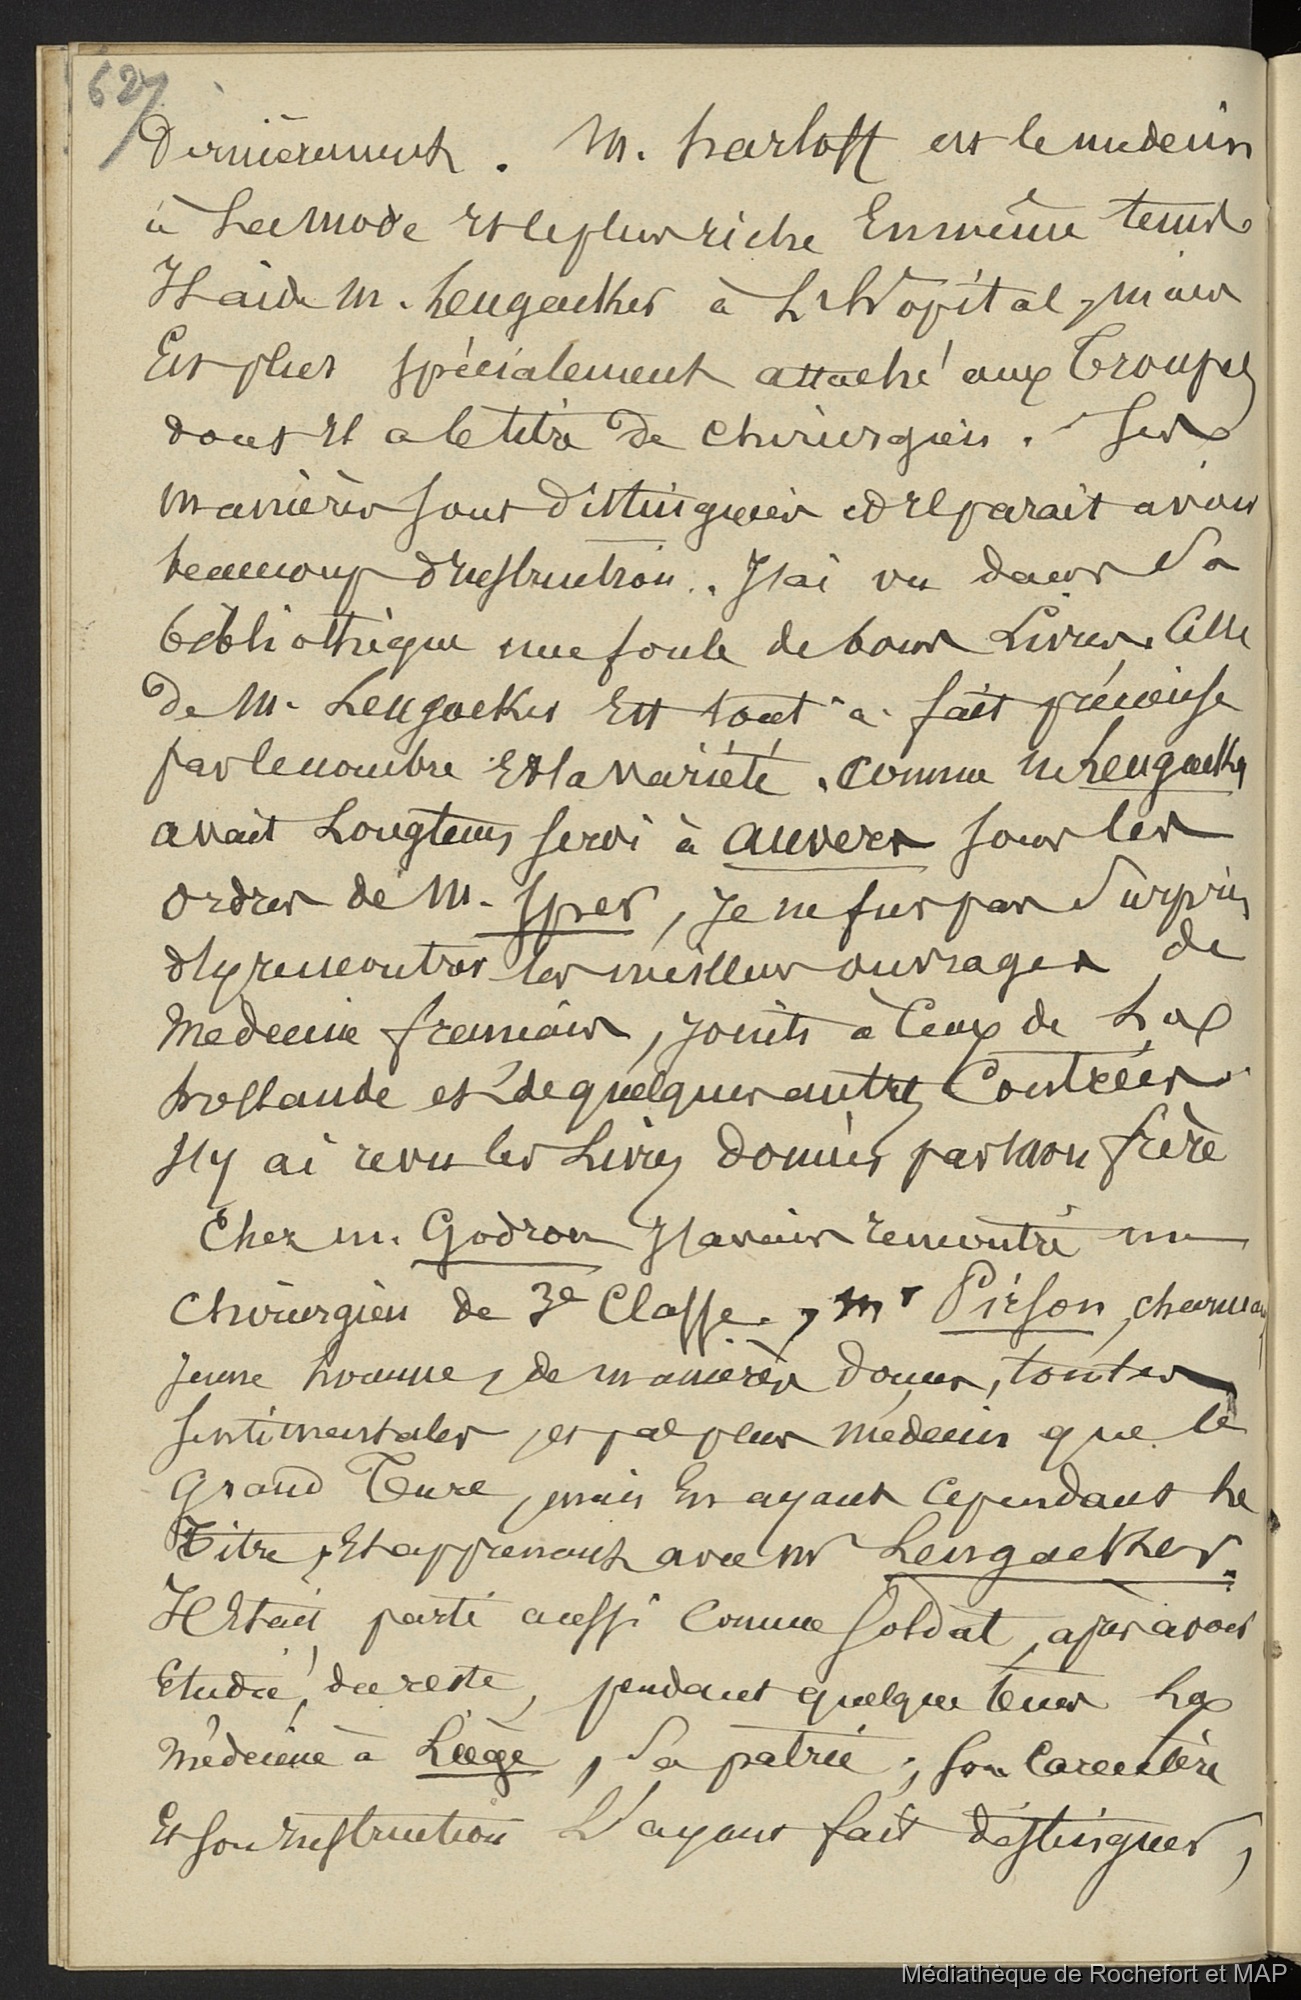 627
Dernièrement. M. harloff est le medecin
à La mode et le plus riche En même tems
Il aide M. Lengacker à L'hôpital, mais
Est plus spécialement attaché aux Troupes
dont Il a le titre De chirurgien. Ses
manières sont distinguées et Il parait avoir
beaucoup d'Instruction. J'ai vu dans Sa
bibliothèque une foule de bons Livres. Celle
De M. Lengackes Est tout à fait précieuse
par le nombre Et la variété. Comme M Lengacker
avait Longtems servi à Anvers sous les
ordres de M. Sper, Je ne fus pas Surpris
d'y rencontrer les meilleurs ouvrages de
Médecine français, joints à Ceux de La
hollande et de quelques autres Contrées
J'y ai revu les Livres donnés par Mon frère
Chez M. Godron J'avais rencontré un
Chirurgien de 3e Classe, Mr Pirson, charmant
jeune homme, de manières douces, toutes
sentimentales, et pas plus médecin que le
Grand Turc, mais En ayant Cependant Le
Titre, Et apprenant avec Mr Lengacker.
Il Etait parti aussi Comme Soldat, après avoir
Etudié, du reste, pendant quelque tems La
Médecine à Liège, Sa patrie; son Caractère
Et son Instruction L'ayant fait distinguer,
Médiathèque de Rochefort et MAP